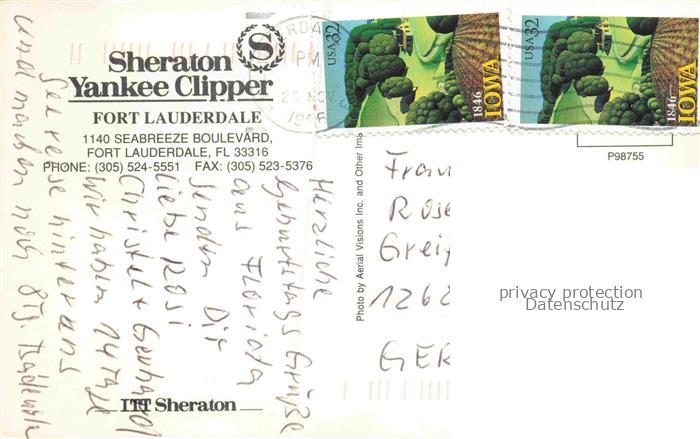 Sheraton
Yankee Clipper
FORT LAUDERDALE
1140 SEABREEZE BOULEVARD,
FORT LAUDERDALE, FL 33316
PHONE: (305) 524-5551 FAX: (305) 523-5376
S
PM
25 NOV
USA 32
1846 IOWA
USA 32
1846 IOWA
P98755
Photo by Aerial Visions Inc. and Other Ima
Herzliche
Geburtstags Grüße
aus Florida
senden Dir
liebe Rosi
Christel + Gerhard
Wir haben 14 Tage
Seereise hinter uns
und machen noch 8 Tg.
Frau
Rose
Grei
1262
GER
ITT Sheraton
privacy protection
Datenschutz